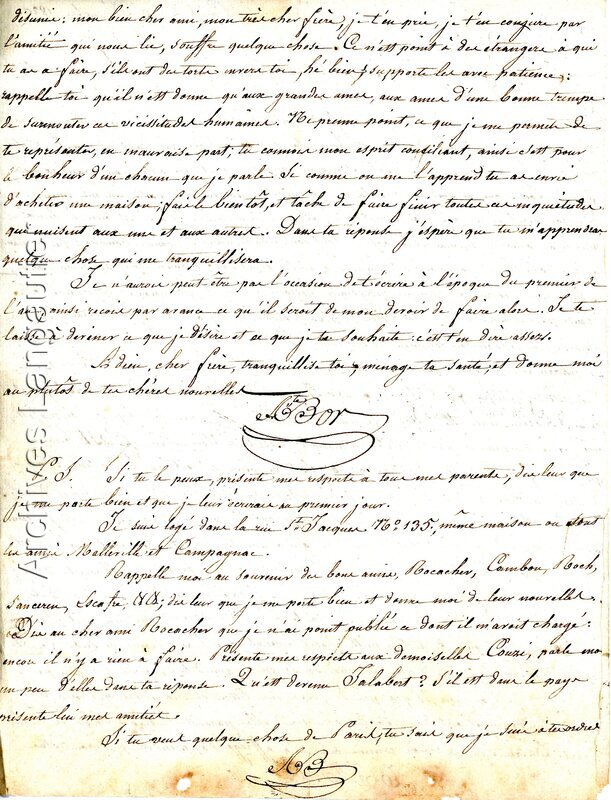 désunie: mon bien cher ami, mon très cher frère, je t'en prie, je t'en conjure par
l'amitié qui nous lie, souffre quelque chose. Ce n'est point à des étrangers à qui
tu as à faire, s'ils ont des torts envers toi, hé bien, supporte les avec patience;
rappelle toi qu'il n'est donné qu'aux grandes ames, aux ames d'une bonne trempe
de surmonter ces vicissitudes humaines. Ne prens point, ce que je me permets de
te représenter, en mauvaise part, tu connois mon esprit conciliant, ainsi c'est pour
le bonheur d'un chacun que je parle. Si comme on me l'apprend tu as envie
d'acheter une maison, fais le bientôt, et tâche de faire finir toutes ces inquiétudes
qui nuisent aux uns et aux autres. Dans ta réponse j'espère que tu m'apprendras
quelque chose qui me tranquillisera.
Je n'aurois peut être pas l'occasion de t'écrire à l'époque du premier de
l'an, ainsi reçois par avance ce qu'il seroit de mon devoir de faire alors. Je te
laisse à deviner ce que je désire et ce que je te souhaite: c'est t'en dire assez.
Adieu, cher frère, tranquillise toi, ménage ta santé, et donne moi
au plutôs de tes chères nouvelles
Ate Bor
P.S. Si tu le peux, présente mes respects à tous mes parents, dis leur que
je me porte bien et que je leur écrirai au premier jour.
Je suis logé dans la rue St Jacques No 135, même maison où sont
les amis Malleville et Campagnac.
Rappelle moi au souvenir des bons amis, Rocacher, Cambou, Roch,
Escafre, &&, dis leur que je me porte bien et donne moi de leur nouvelles.
Dis au cher ami Rocacher que je n'ai point publié ce dont il m'avoit chargé:
encore il n'y a rien à faire. Présente mes respects aux demoiselles Couzi, parle moi
un peu d'elles dans ta réponse. Qu'est devenu Jalabert? S'il est dans le pays
présente lui mes amitiés.
Si tu veux quelque chose de Paris, tu sais que je suis à tes ordres
AB
Archives Langautier